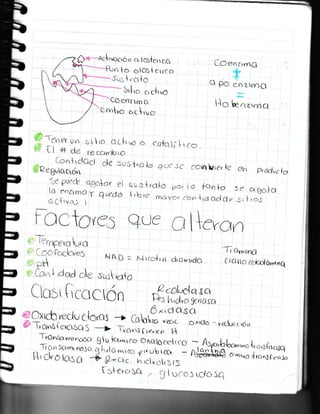 Activación alostérica
Punto alostérico
Sustrato
Sitio activo
Coenzima
Centro activo
Coenzima
+
apo enzima
=
Holoenzima
Tener un sitio activo o catalítico.
El # de recambio
Cantidad de sustrato que se convierte en producto
Regulación
Se puede agotar el sustrato por lo tanto se agota
la enzima y queda libre mayor cantidad de sitios
activos
Factores que alteran
Temperatura
Cofactores
NAD = Nicotin diamida
Tiamina
Ciano cobalamina
pH
Cantidad de sustrato
Clasificación
Reductasa
Deshidrogenasa
Oxidasa
Oxidoreductoras → Cataliza reac. oxido-reducción
Transferasas → Transfieren H
Transaminasa glutamico oxalacetico - Aspartato amino transferasa
Transaminasa glutamico piruvica - Alanina amino transferasa
Hidrolasa → Reacc. hidrolisis
Esterasa, glucosidasa